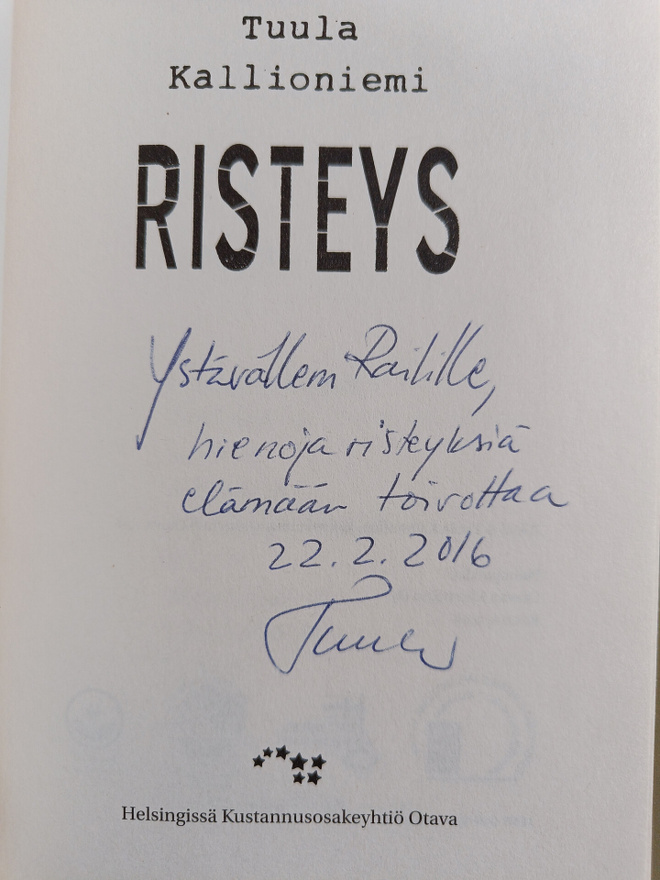 Tuula
Kallioniemi
RISTEYS
Ystävällem Railille,
hienoja risteyksiä
elämään toivottaa
22.2.2016
Tuula
Helsingissä Kustannusosakeyhtiö Otava